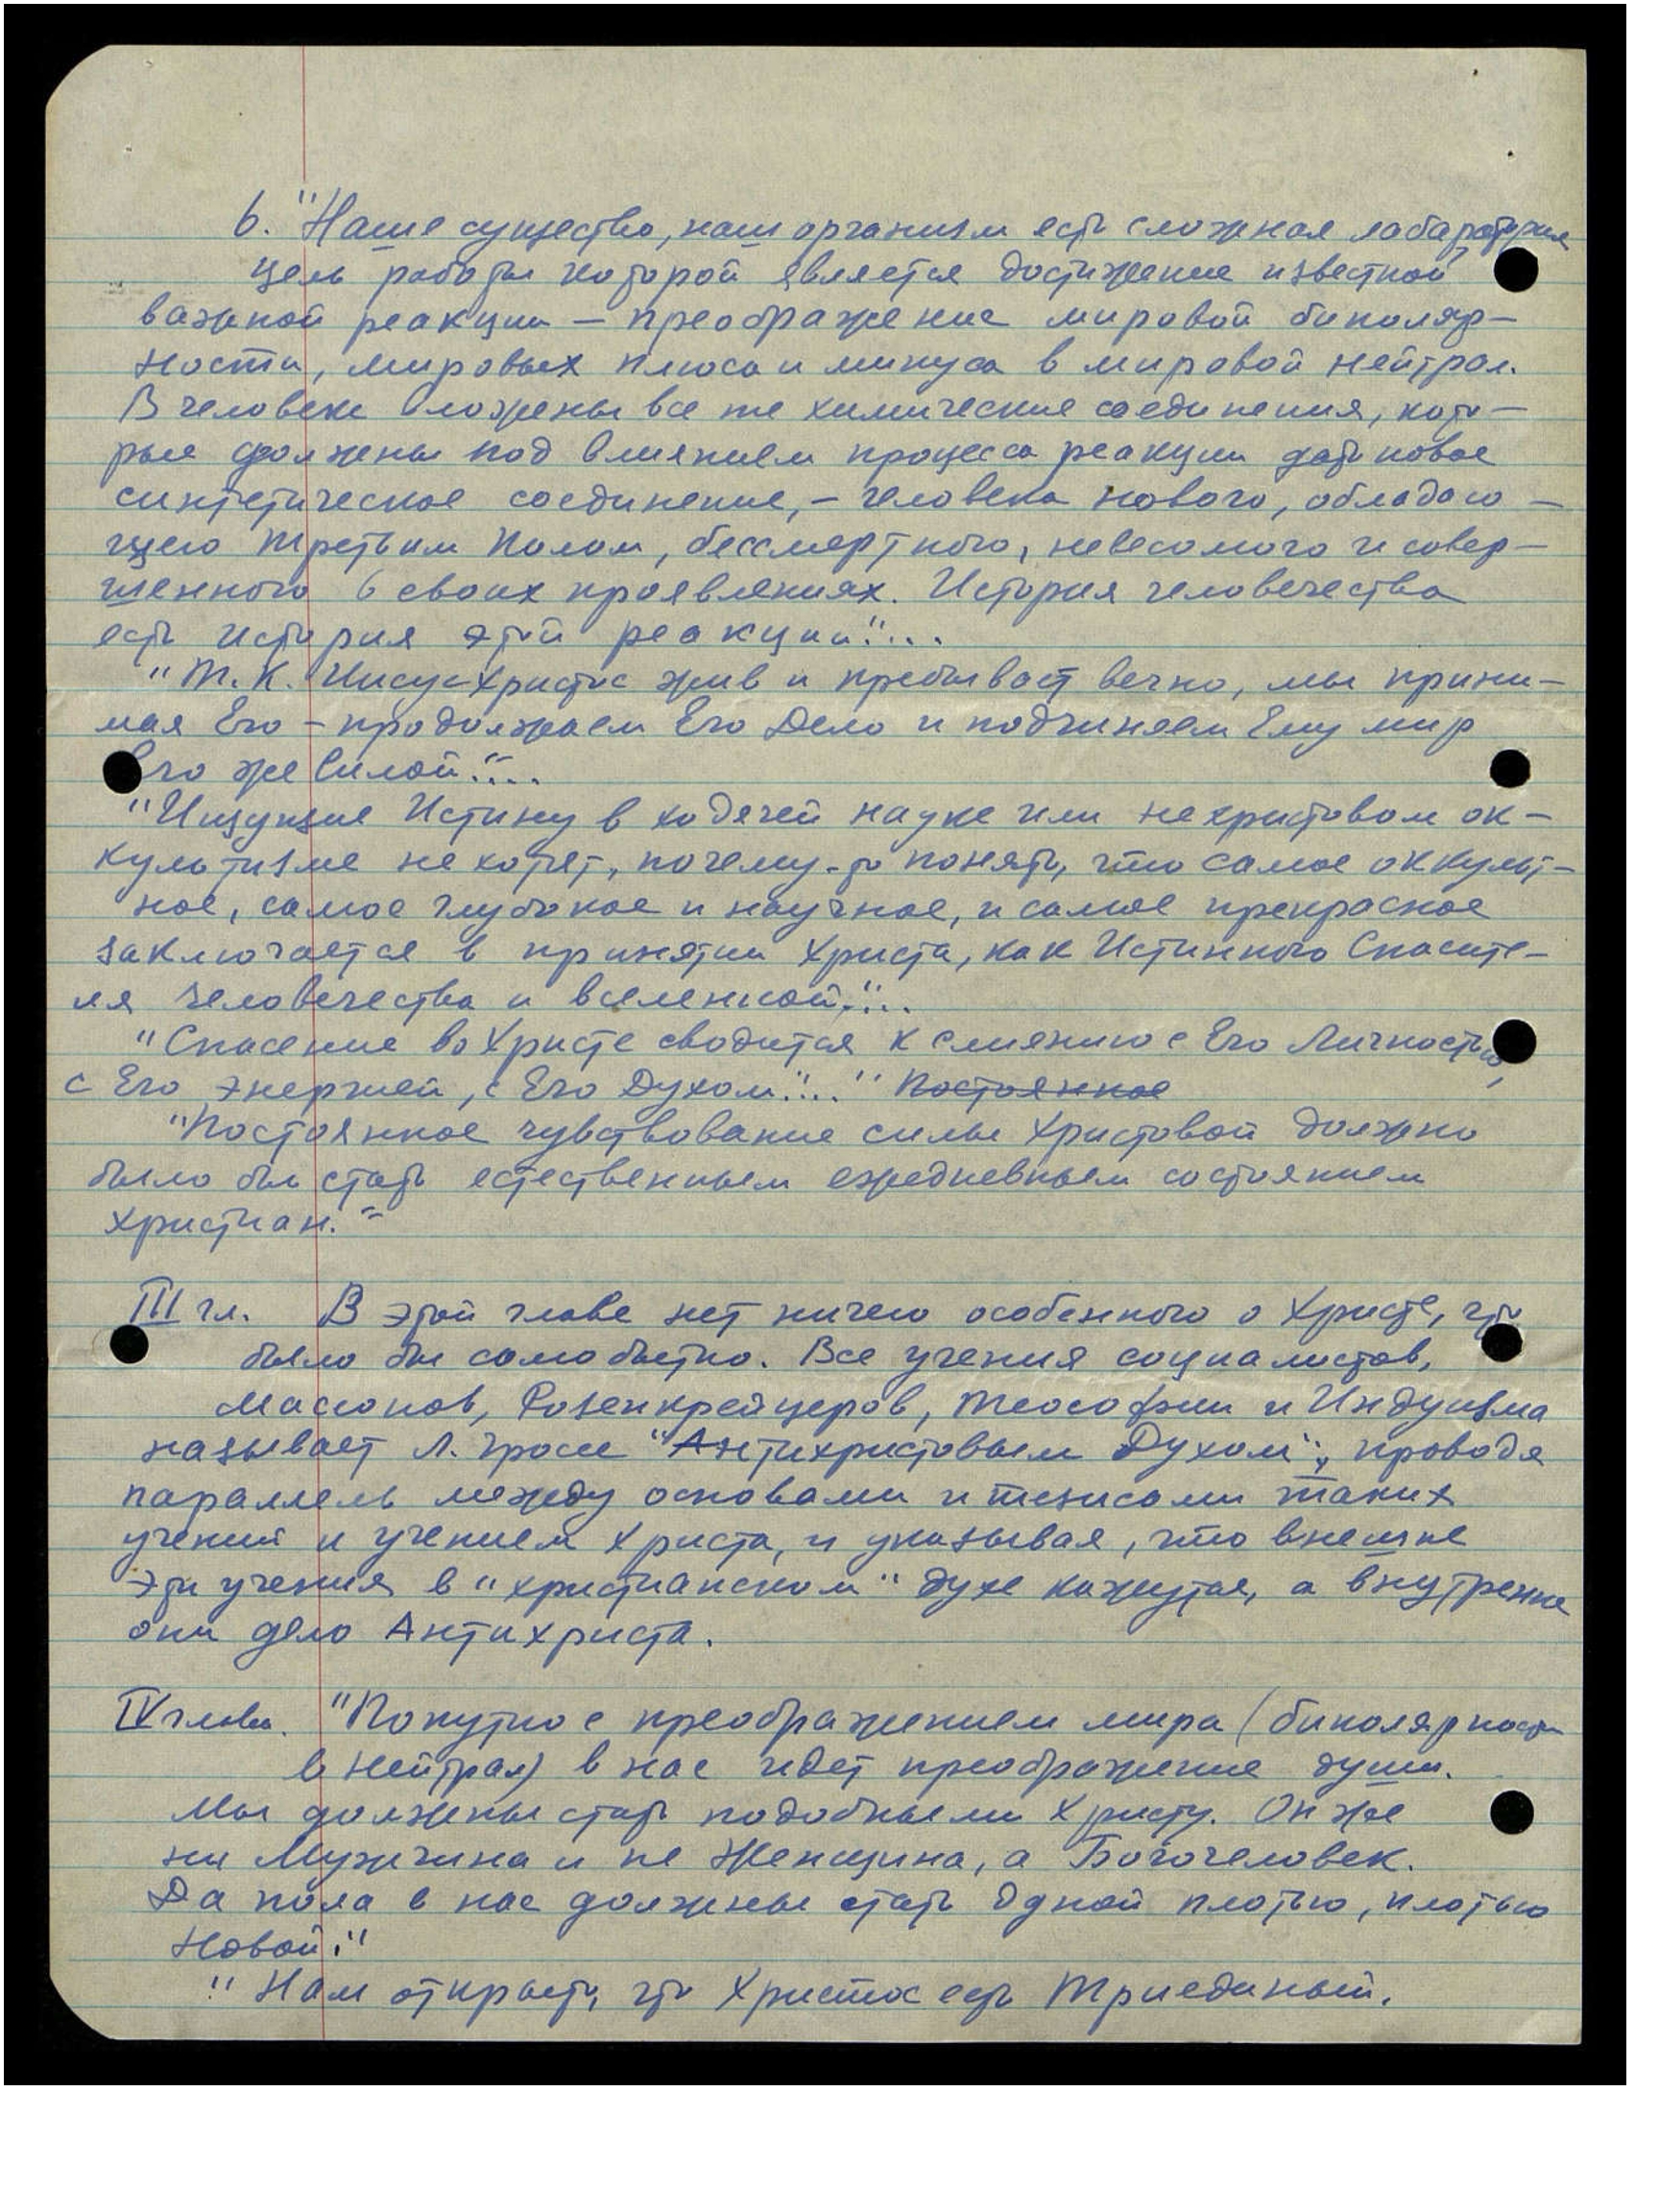 6. "Наше существо, наш организм есть сложная лабаратория
цель работы которой является достижение известной
важной реакции — преображение мировой биполяр-
ности, мировых плюса и минуса в мировой нейтрал.
В человеке вложены все те химические соединения, кото-
рые должены под влиянием процесса реакции дать новое
синтетическое соединение, - человека нового, обладаю-
щего третьим Полом, бессмертного, невесомого и совер-
шенного в своих проявлениях. История человечества
есть история этой реакции"...
"Т.К. Иисус Христос жив и пребывает вечно, мы прини-
мая Его - продолжаем Его Дело и подчиняем Ему мир
Его же Силой."...
"Ищущие Истину в ходячей науке или нехристовом ок-
культизме не хотят, почему-то понять, что самое оккульт-
ное, самое глубокое и научное, и самое прекрасное
заключается в принятии Христа, как Истинного Спасите-
ля человечества и вселенной."...
"Спасение во Христе сводится к слиянию с Его Личностью,
с Его энергией, с Его Духом."... " Постоянное
"Постоянное чувствование силы Христовой должно
было бы стать естественным ежедневным состоянием
христиан."
III гл. В этой главе нет ничего особенного о Христе, что
было бы самобытно. Все учения социалистов,
Масонов, Розенкрейцеров, Теософии и Индуизма
называет Л. Гросс "Антихристовым Духом", проводя
параллель между основами и тезисами таких
учений и учением Христа, и указывая, что внешне
эти учения в "христианском" духе кажутся, а внутренне
они дело Антихриста.
IV глава. "Попутно с преображением мира (биполярности
в нейтрал) в нас идет преображение души.
Мы должены стать подобными Христу. Он же
ни Мужчина и не Женщина, а Богочеловек.
Да пола в нас должны стать одной плотью, плотью
новой."
"Нам открыто, что Христос есть Триединый.